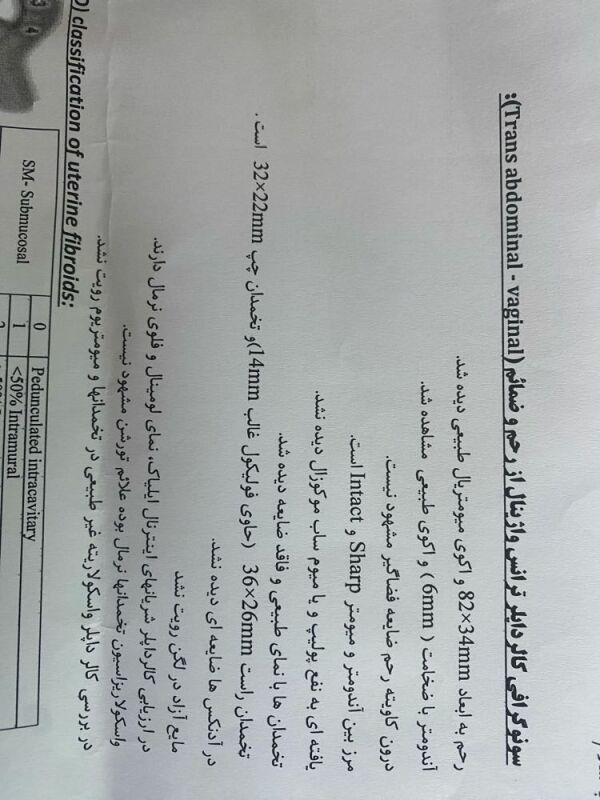 سونوگرافی کالرداپلر ترانس واژینال از رحم و ضمائم (Trans abdominal - vaginal):
رحم به ابعاد 82×34mm و اکوی میومتریال طبیعی دیده شد.
آندومتر با ضخامت ( 6mm ) و اکوی طبیعی مشاهده شد.
درون کاویته رحم ضایعه فضاگیر مشهود نیست.
مرز بین آندومتر و میومتر Sharp و Intact است.
یافته ای به نفع پولیپ و یا میوم ساب موکوزال دیده نشد.
تخمدان ها با نمای طبیعی و فاقد ضایعه دیده شد.
تخمدان راست 36×26mm (حاوی فولیکول غالب 14mm)و تخمدان چپ 32×22mm است .
در آدنکس ها ضایعه ای دیده نشد.
مایع آزاد در لگن رویت نشد
در ارزیابی کالرداپلر شریانهای اینترنال ایلیاک، نمای لومینال و فلوی نرمال دارند.
واسکولاریزاسیون تخمدانها نرمال بوده علائم تورشن مشهود نیست.
در بررسی کالر داپلر واسکولاریته غیر طبیعی در تخمدانها و میومتریوم رویت نشد.
O) classification of uterine fibroids:
3 4
SM- Submucosal
0 Pedunculated intracavitary
1 <50% Intramural
2